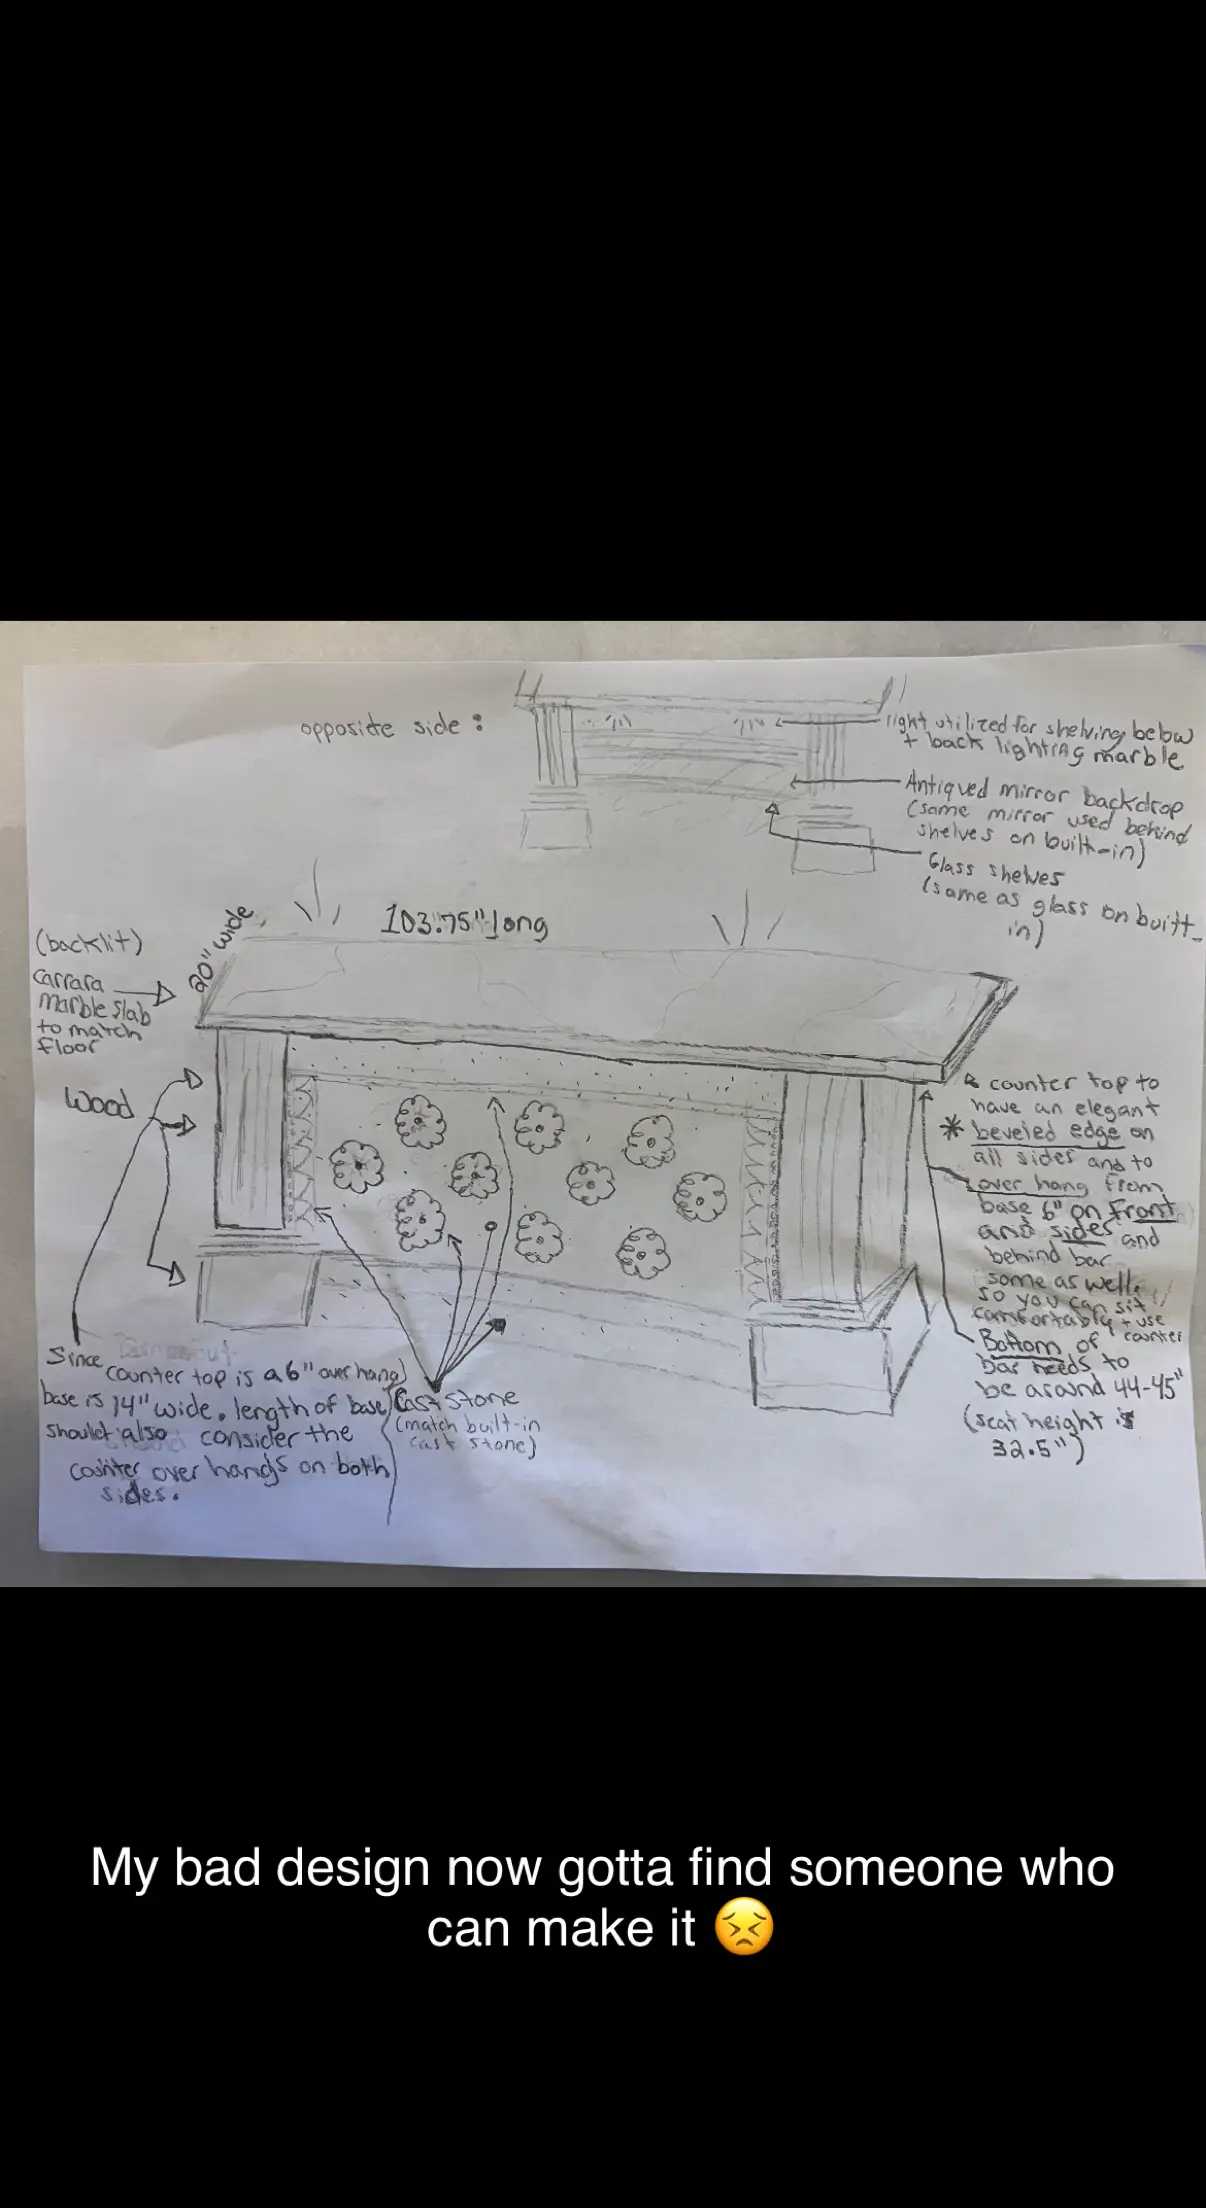 opposite side :
light utilized for shelving below
+ back lighting marble
Antiqued mirror backdrop
(same mirror used behind
shelves on built-in)
Glass shelves
(same as glass on built-
in)
103.75" long
20" wide
(backlit)
carrara
marble slab
to match
floor
Wood
counter top to
have an elegant
* beveled edge on
all sides and to
over hang from
base 6" on front
and sides and
behind bar
some as well,
so you can sit
comfortably + use
counter
Bottom of
bar needs to
be around 44-45"
(seat height is
32.5")
Since
counter top is a 6" over hang
base is 14" wide. length of base
should also consider the
counter over hangs on both
sides.
Cast stone
(match built-in
cast stone)
My bad design now gotta find someone who
can make it 😣